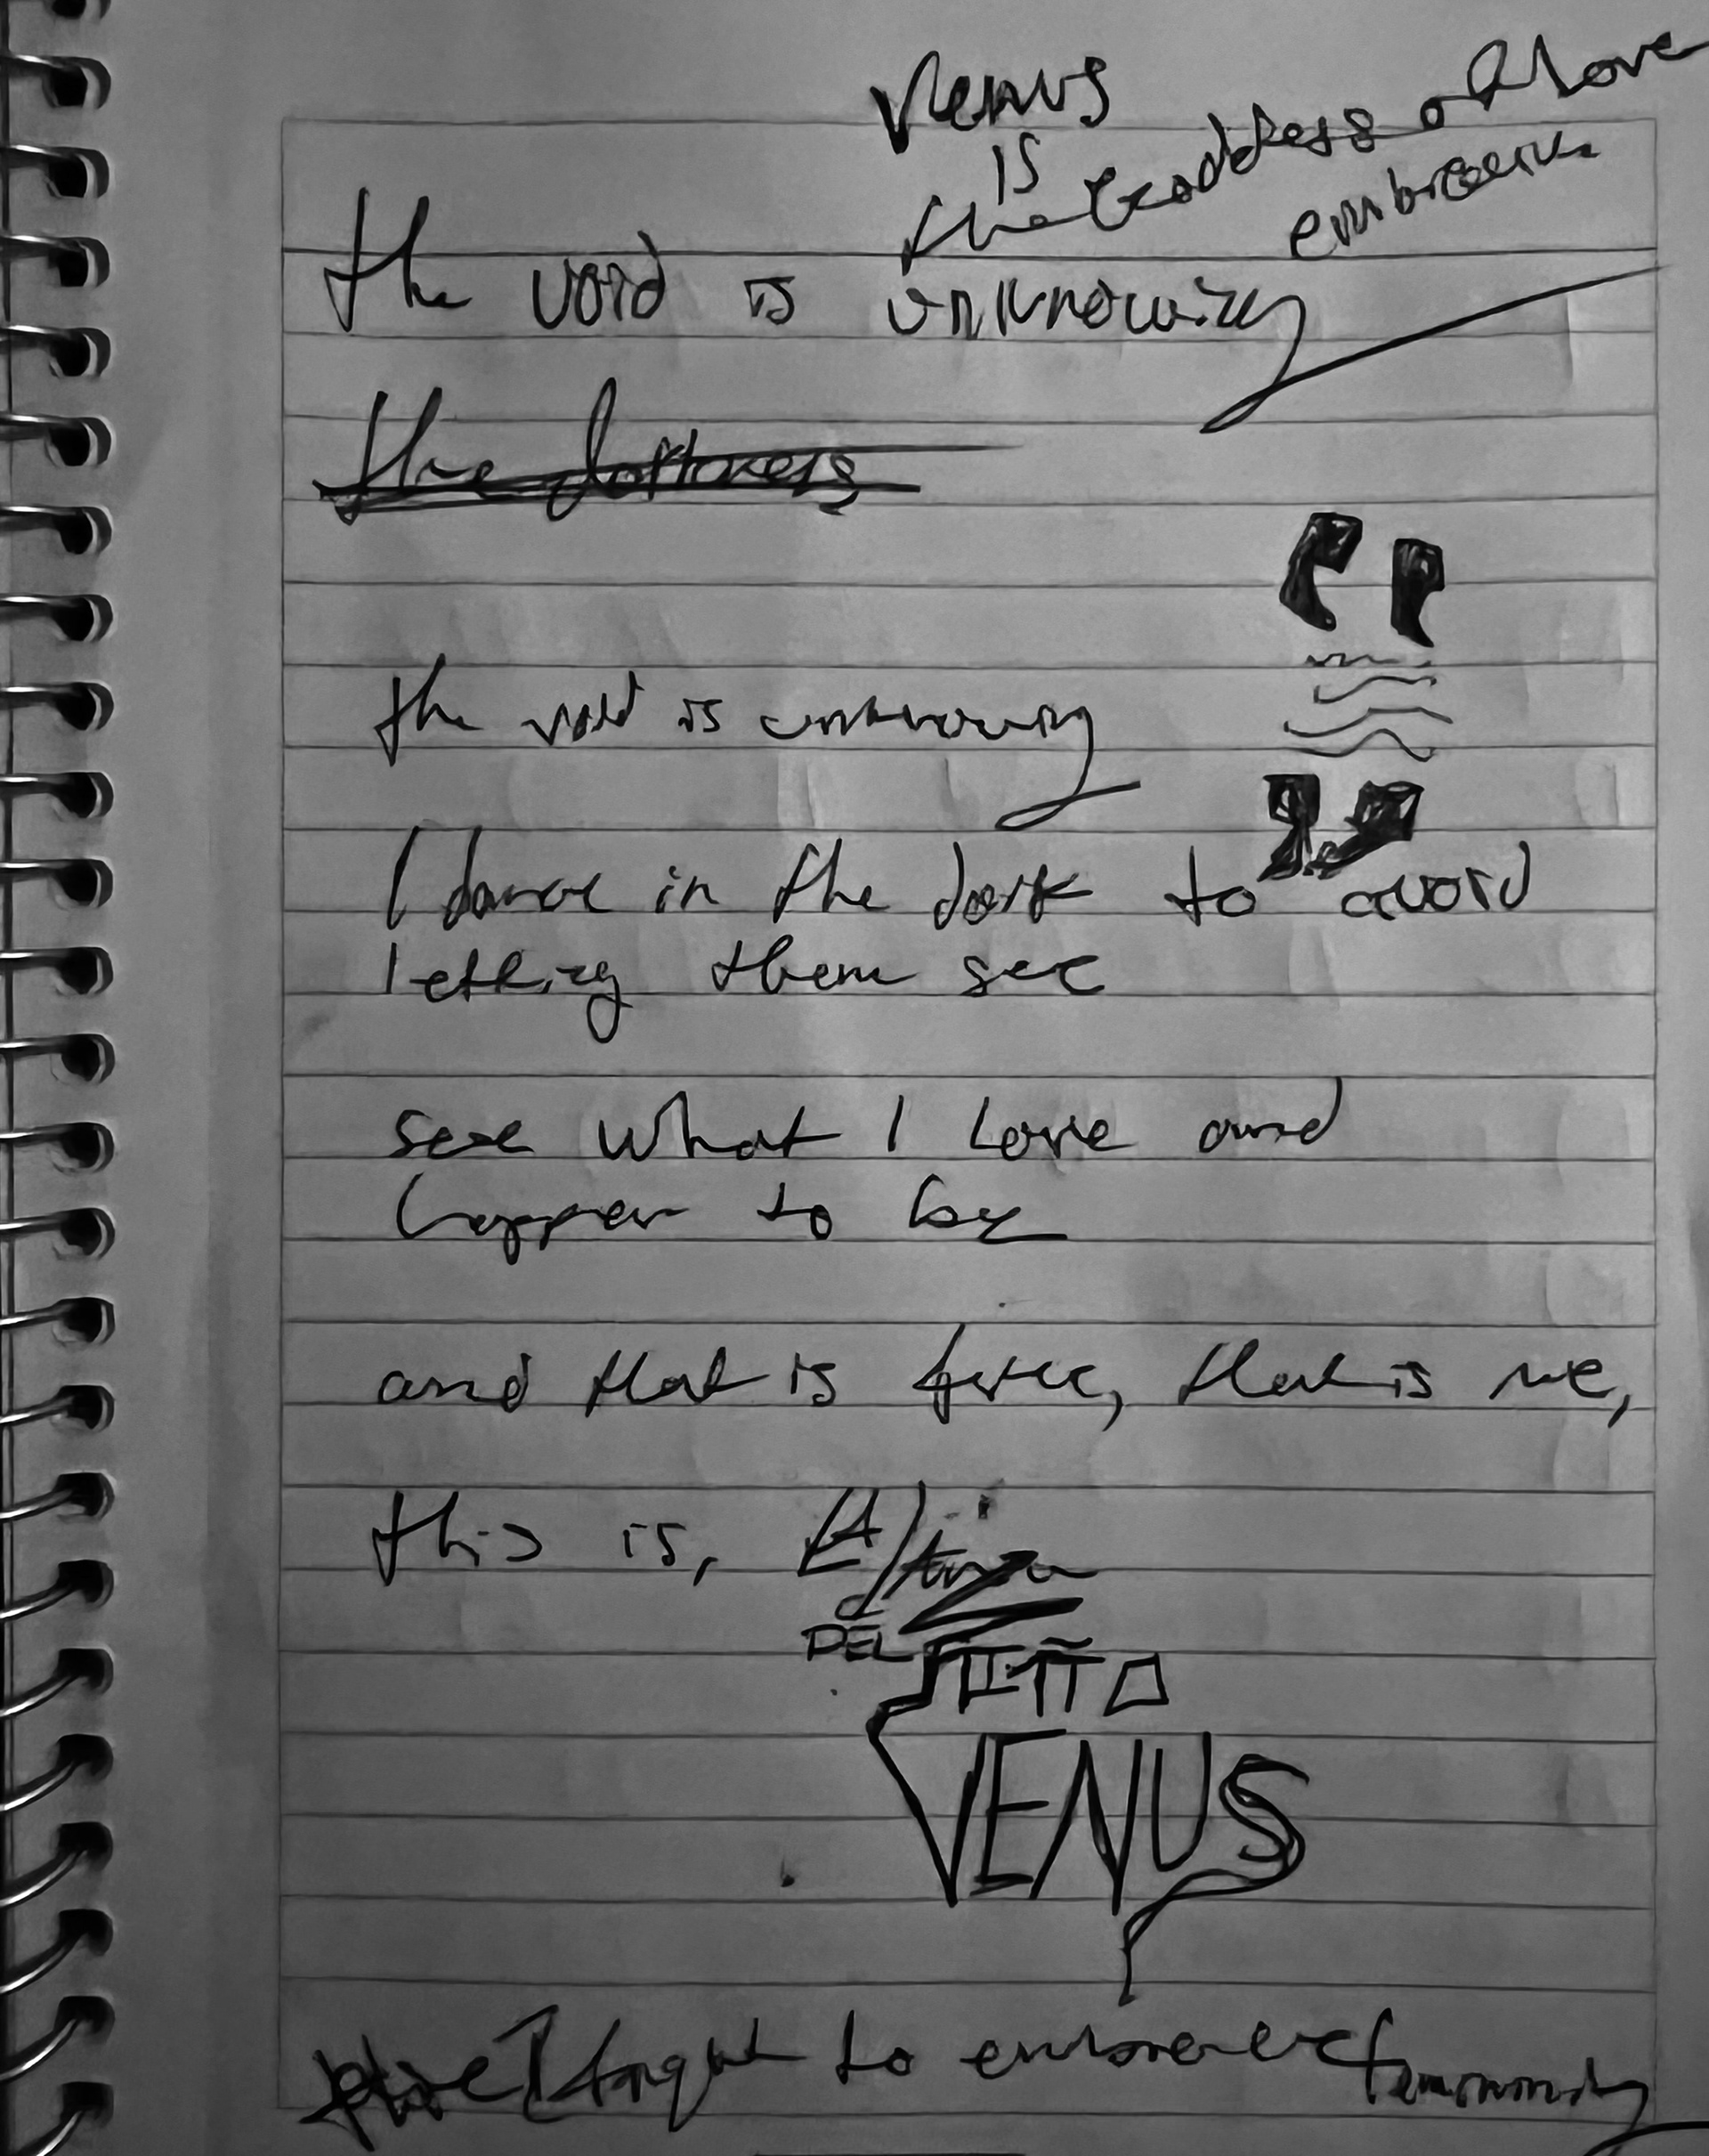 Venus
is
the Goddess of Love
the void is unknowing
the darkness
the void is unknowing
I dance in the dark to avoid
letting them see
see what I love and
happen to be
and that is free, that is me,
this is,
DEL
VENUS
I taught to embrace femininity